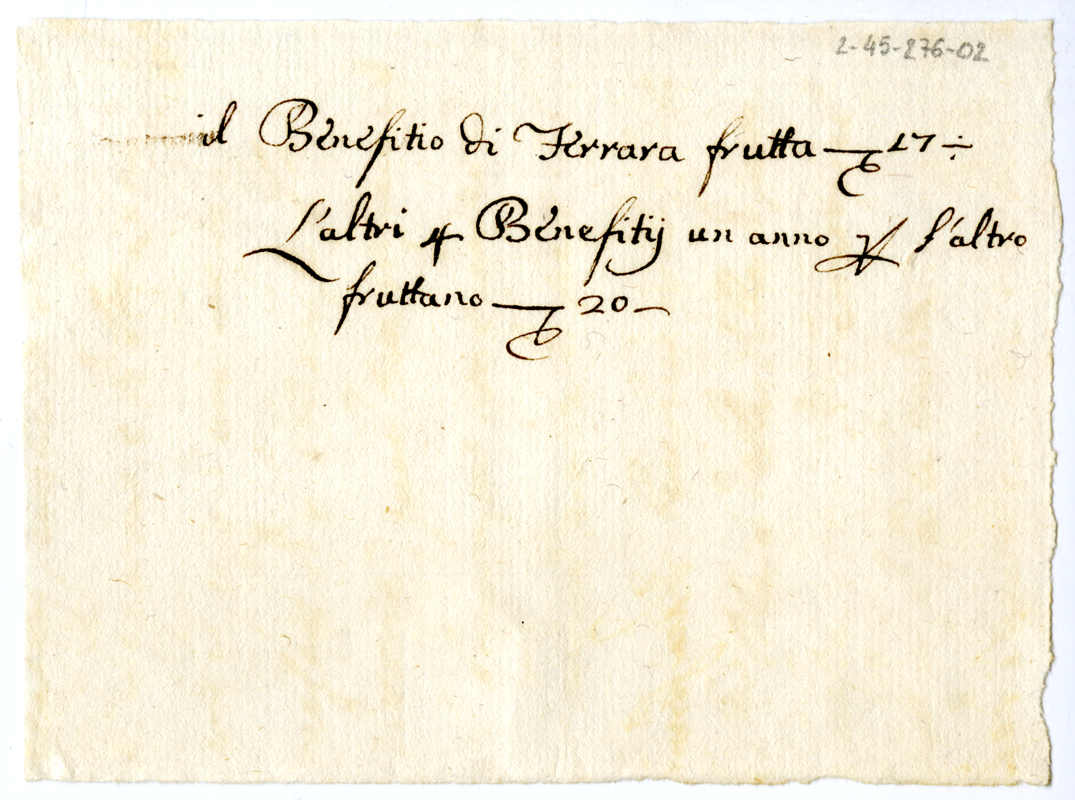 2-45-276-02
il Benefitio di Ferrara frutta — 17 ÷
L'altri 4 Benefitij un anno l'altro
fruttano — 20 –